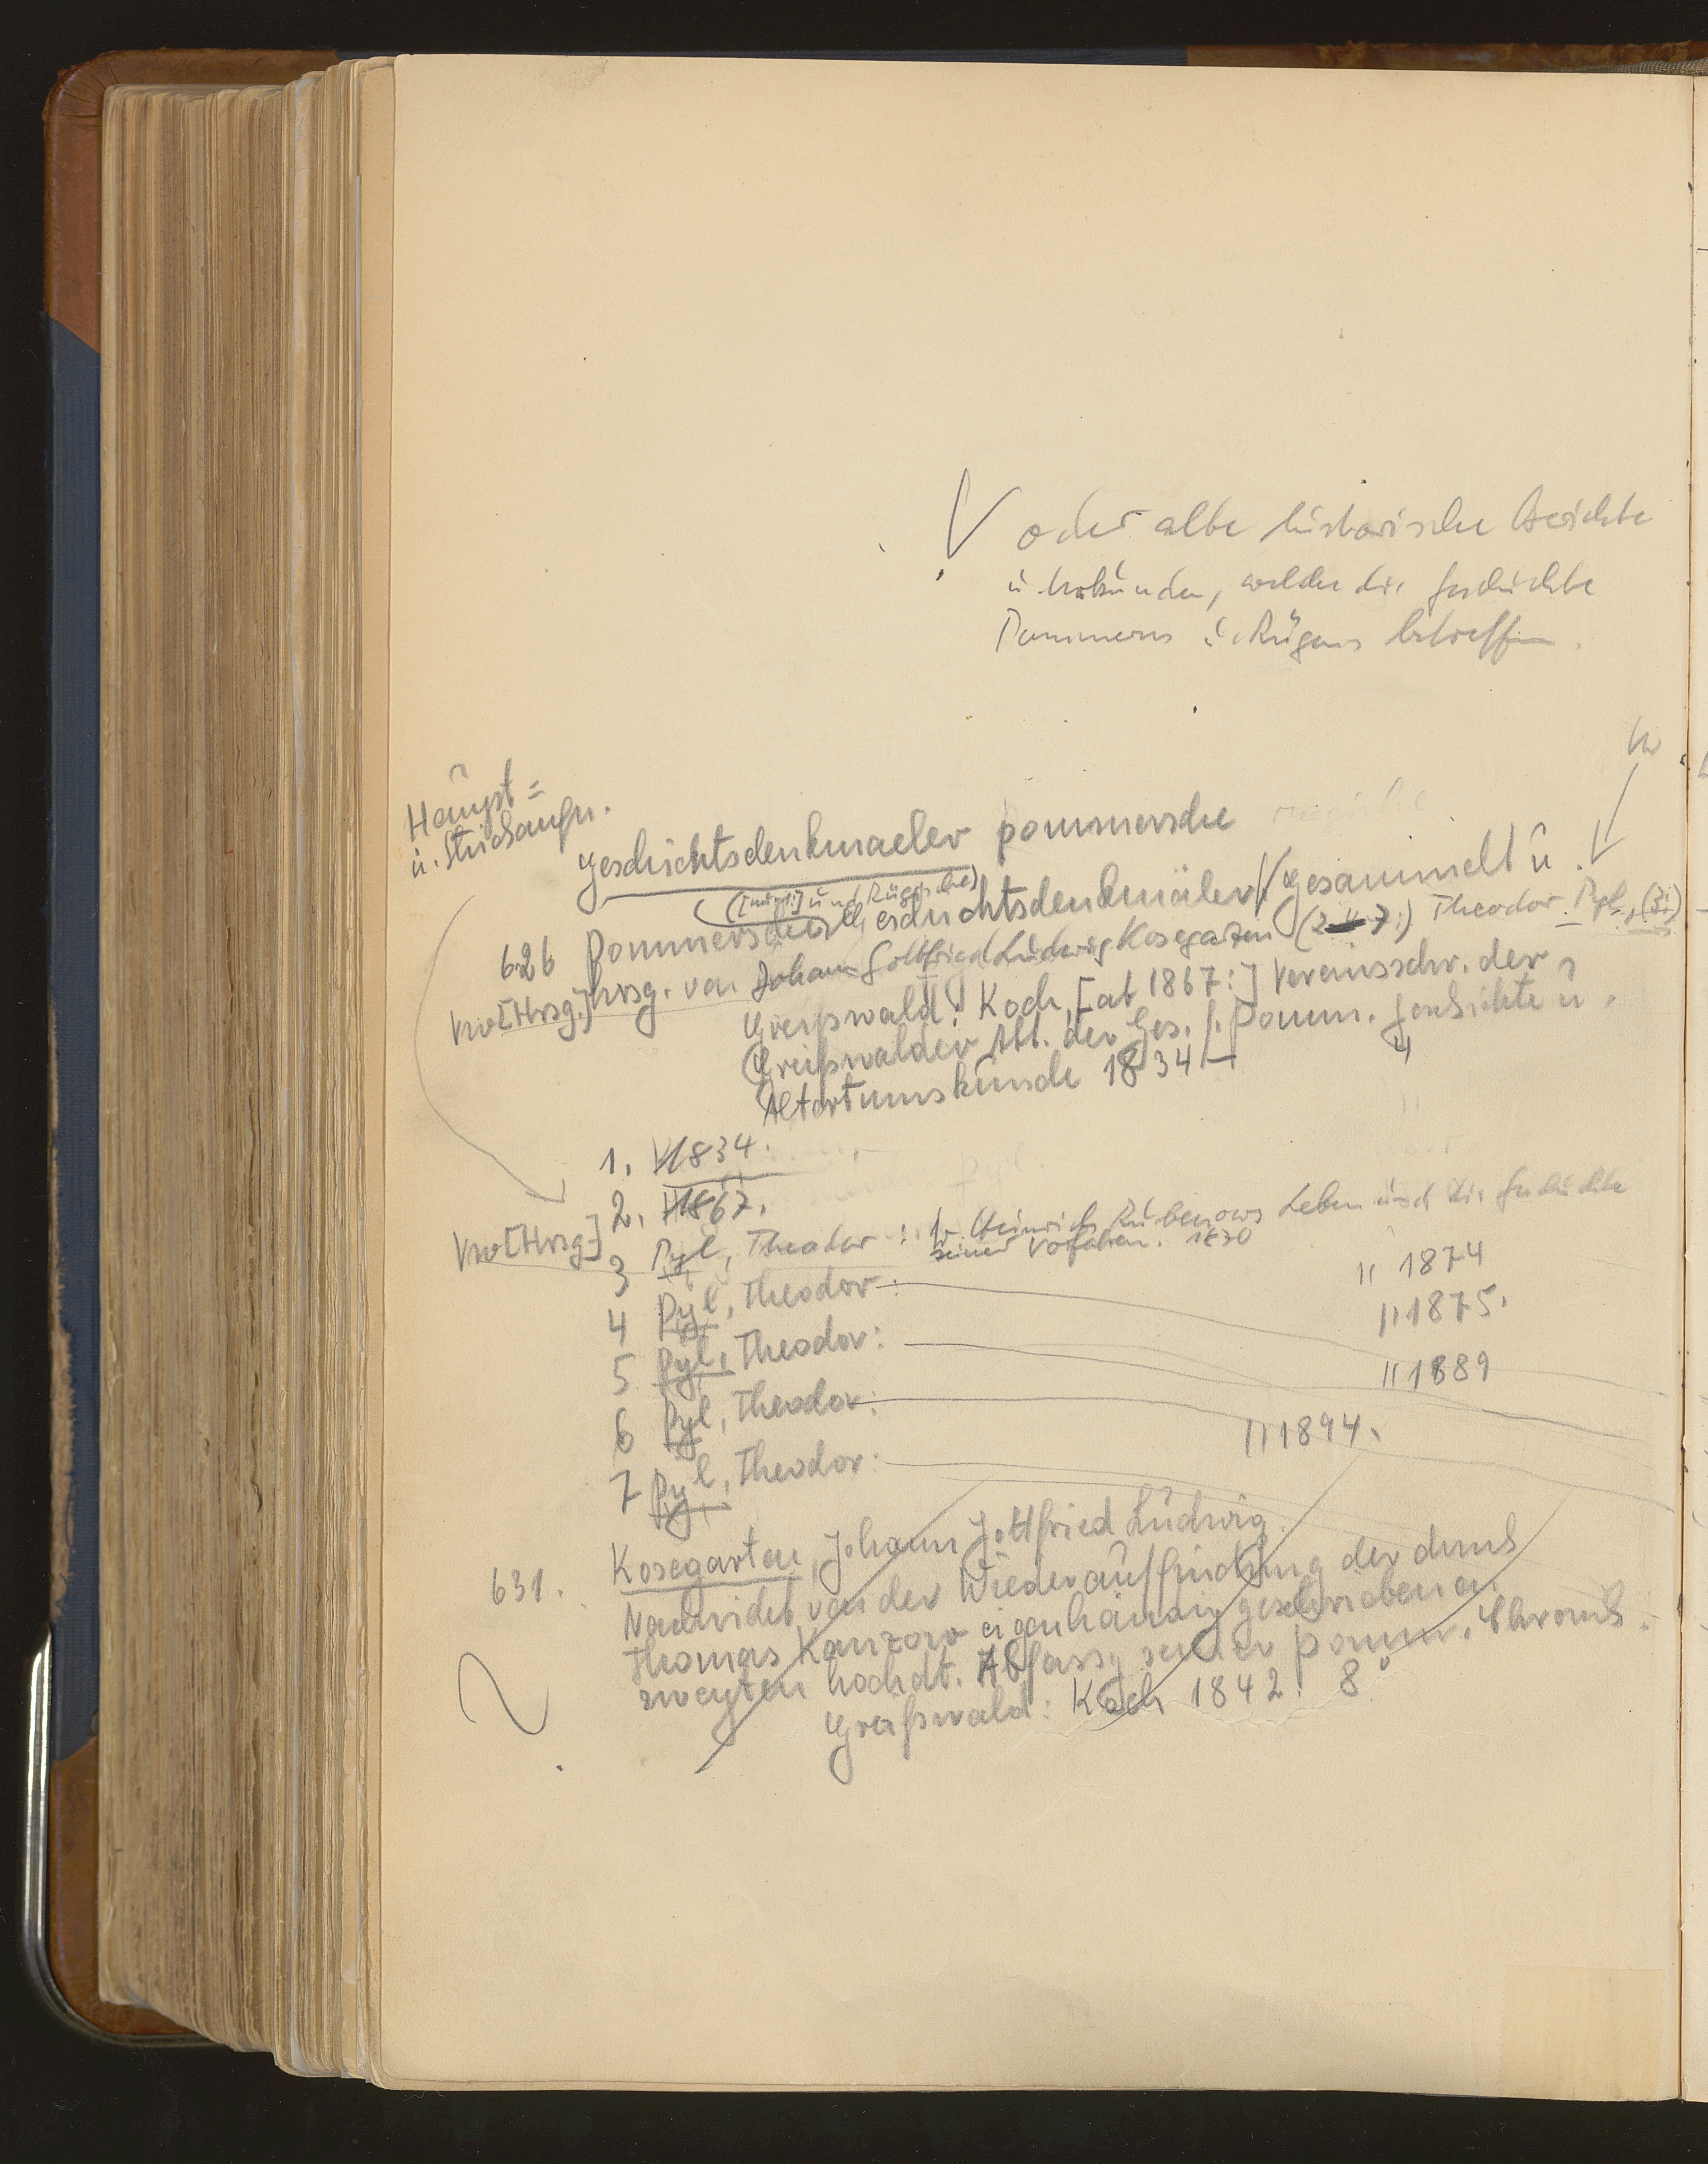 oder alte historische Berichte
u Urkunden, welche die Geschichte
Pommerns u. Rügens betreffen.
Haupt=
u. Stichaufn.
Geschichtsdenkmaeler pommersche
([mit 1:] und Rügische)
626 Pommersche Geschichtsdenkmäler / gesammelt u.
Vw[Hrsg.] hrsg. von Johann Gottfried Ludwig Kosegarten (2-7:) Theodor Pyl,
Greifswald: Koch, [ab 1867:] Vereinsschr. der
Greifswalder Abt. der Ges. f. Pomm. Geschichte u.
Altertumskunde 1834 –
1. 1834.
2. 1867.
Vw[Hrsg.]
3 Pyl, Theodor: 1. Heinrich Rubenows Leben und die Geschichte
seiner Vorfahren. 1870
4 Pyl, Theodor: 1874
5 Pyl, Theodor: 1875.
6 Pyl, Theodor: 1889
7 Pyl, Theodor: 1894.
631. Kosegarten, Johann Gottfried Ludwig
Nachricht von der Wiederauffindung der durch
Thomas Kanzow eigenhändig geschriebenen
zweyten hochdt. Abfassg seiner pomm. Chronik.
Greifswald: Koch 1842. 8°